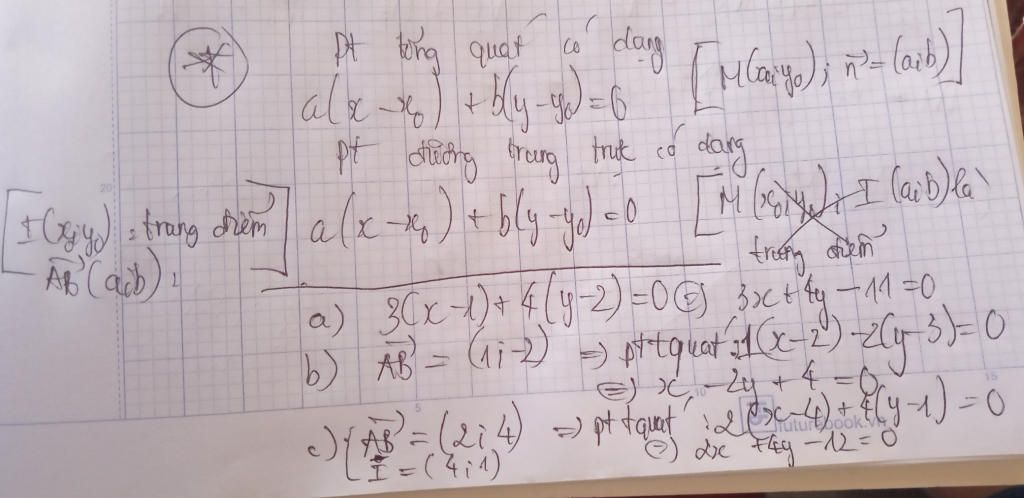 pt tổng quát có dạng
a(x-x₀) + b(y-y₀) = 0 [M(x₀;y₀); n⃗ = (a;b)]
pt đường trung trực có dạng
[I(x₀;y₀) : trung điểm
AB⃗(a;b) : ]
a(x-x₀) + b(y-y₀) = 0 [M(x₀;y₀), I(a;b) là
trung điểm
a) 3(x-1) + 4(y-2) = 0 ⇔ 3x + 4y - 11 = 0
b) AB⃗ = (1;-2) ⇒ pt tquát : 1(x-2) - 2(y-3) = 0
⇔ x - 2y + 4 = 0
c) { AB⃗ = (2;4) ⇒ pt tquát : 2(x-4) + 4(y-1) = 0
I = (4;1) ⇔ 2x + 4y - 12 = 0
20
5
10
15
futurebook.vn